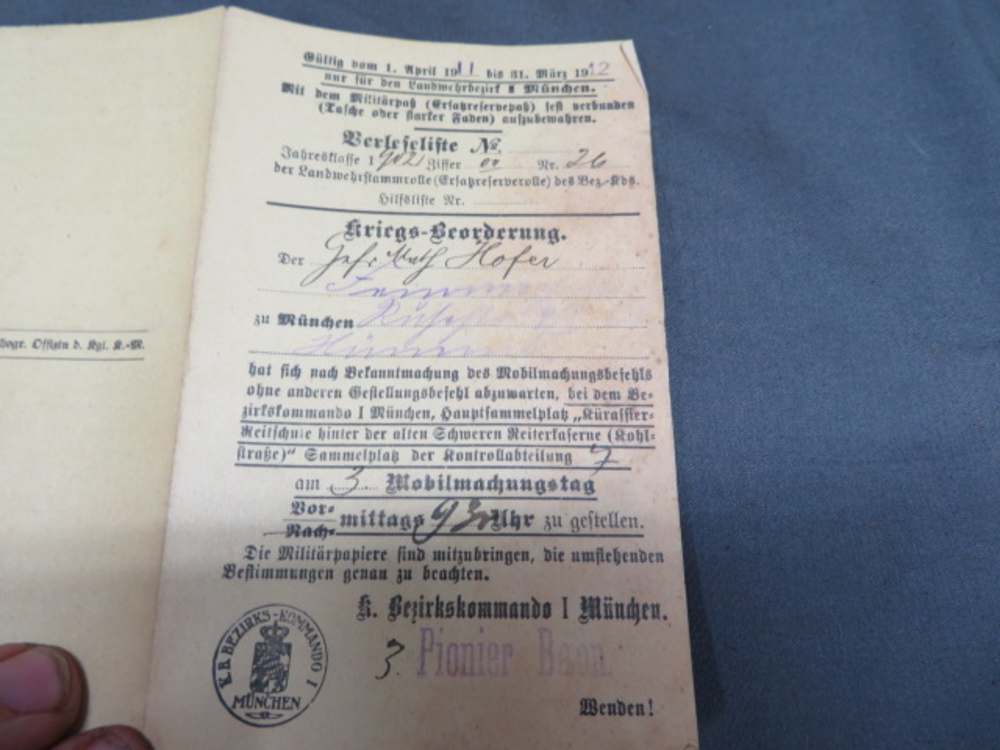 Gültig vom 1. April 1911 bis 31. März 1912
nur für den Landwehrbezirk I München.
Mit dem Militärpaß (Ersatzreservepaß) fest verbunden
(Tasche oder starker Faden) aufzubewahren.
Verleseliste No.
Jahresklasse 1902 Ziffer Nr. 26
der Landwehrstammrolle (Ersatzreserverolle) des Bez.-Kds.
Hilfsliste Nr.
Kriegs-Beorderung.
Der Gefr Math Hofer
zu München
hat sich nach Bekanntmachung des Mobilmachungsbefehls
ohne anderen Gestellungsbefehl abzuwarten, bei dem Be-
zirkskommando I München, Hauptsammelplatz „Kürassier-
Reitschule hinter der alten Schweren Reiterkaserne (Kohl-
straße)" Sammelplatz der Kontrollabteilung 7
am 3. Mobilmachungstag
Vor-
Nach-
mittags 9 30 Uhr zu gestellen.
Die Militärpapiere sind mitzubringen, die umstehenden
Bestimmungen genau zu beachten.
K. Bezirkskommando I München.
3. Pionier Baon.
K.B. BEZIRKS-KOMMANDO I
MÜNCHEN
Wenden!
bogr. Offizin d. Kgl. K.-M.